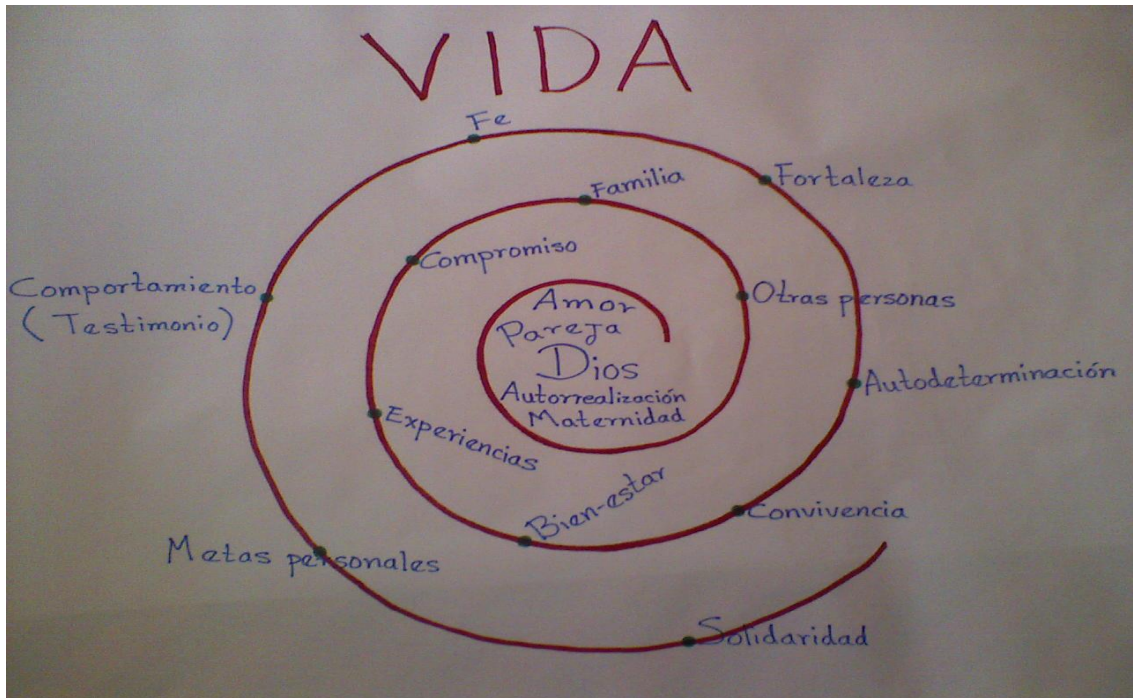 VIDA
Fe
Familia
Fortaleza
Compromiso
Comportamiento
(Testimonio)
Otras personas
Amor
Pareja
Dios
Autorrealización
Maternidad
Autodeterminación
Experiencias
Bien-estar
Convivencia
Metas personales
Solidaridad